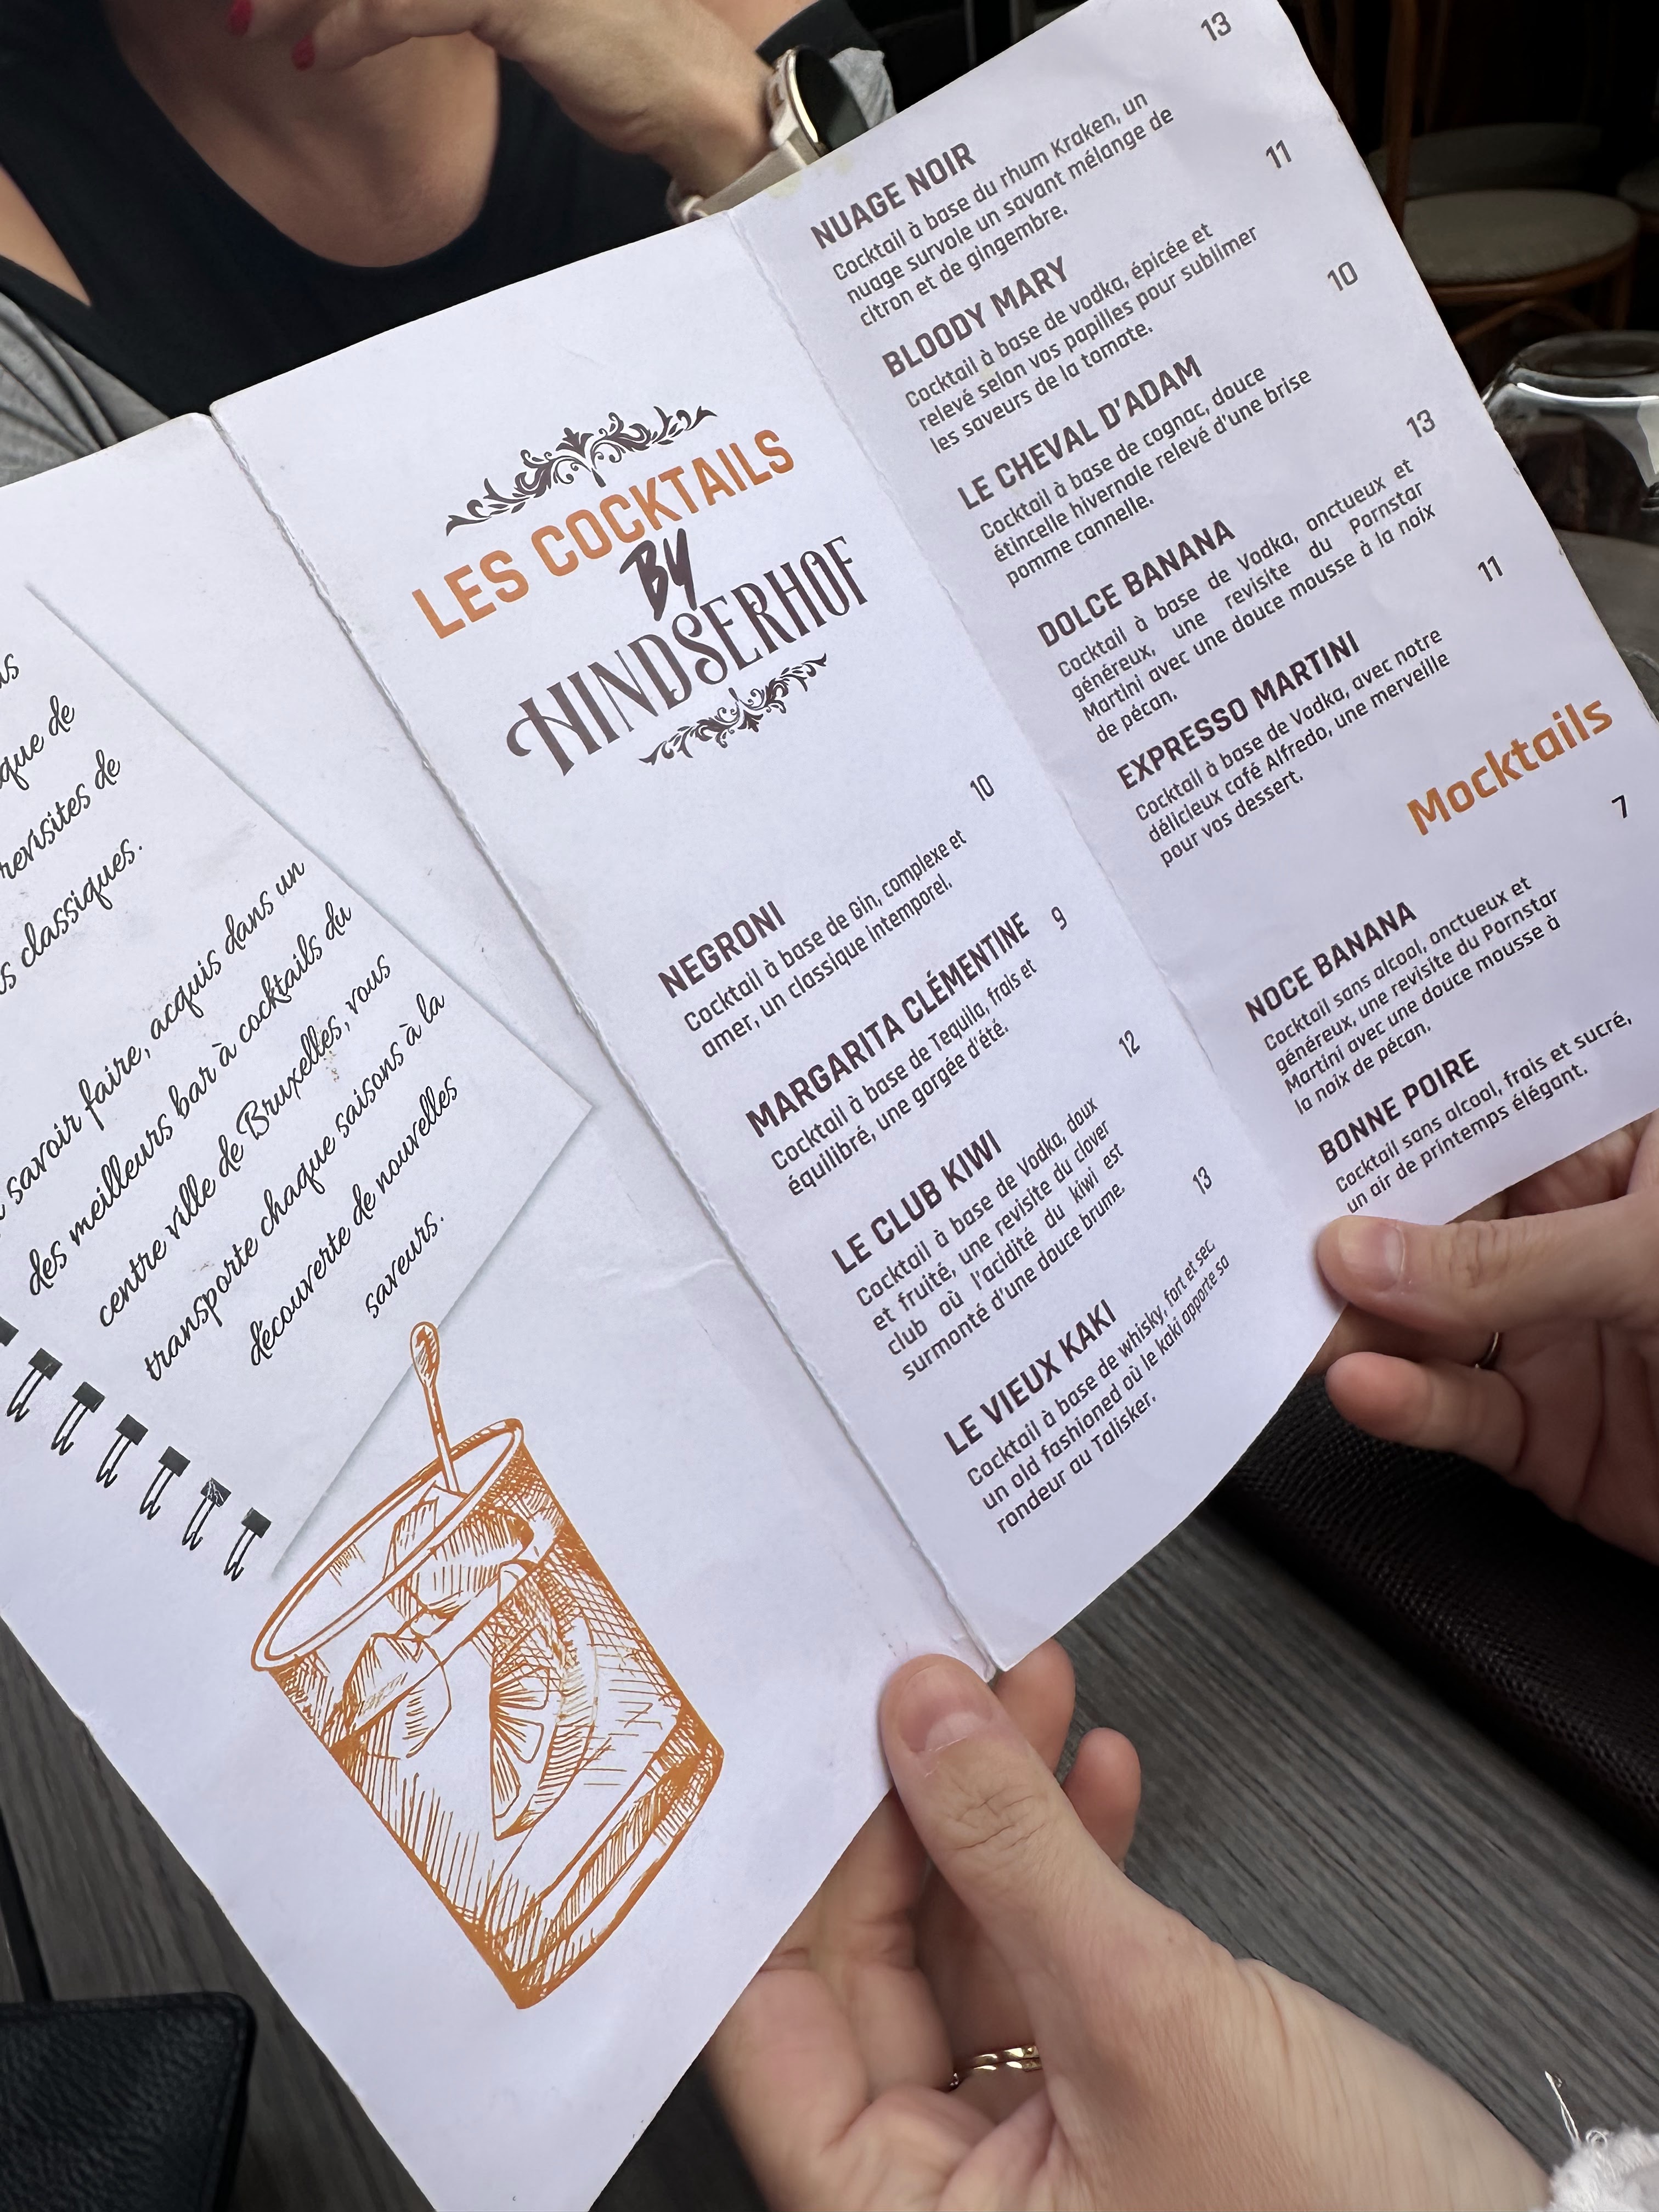 que de
revisites de
classiques.
savoir faire, acquis dans un
des meilleurs bar à cocktails du
centre ville de Bruxelles, vous
transporte chaque saisons à la
découverte de nouvelles
saveurs.
LES COCKTAILS
BY
HINDSERHOF
10
NEGRONI
Cocktail à base de Gin, complexe et
amer, un classique intemporel.
MARGARITA CLÉMENTINE 9
Cocktail à base de Tequila, frais et
équilibré, une gorgée d'été.
12
LE CLUB KIWI
Cocktail à base de Vodka, doux
et fruité, une revisite du clover
club où l'acidité du kiwi est
surmonté d'une douce brume.
13
LE VIEUX KAKI
Cocktail à base de whisky, fort et sec,
un old fashioned où le kaki apporte sa
rondeur au Talisker.
13
NUAGE NOIR
Cocktail à base du rhum Kraken, un
nuage survole un savant mélange de
citron et de gingembre.
11
BLOODY MARY
Cocktail à base de vodka, épicée et
relevé selon vos papilles pour sublimer
les saveurs de la tomate.
10
LE CHEVAL D'ADAM
Cocktail à base de cognac, douce
étincelle hivernale relevé d'une brise
pomme cannelle.
13
DOLCE BANANA
Cocktail à base de Vodka, onctueux et
généreux, une revisite du Pornstar
Martini avec une douce mousse à la noix
de pécan.
11
EXPRESSO MARTINI
Cocktail à base de Vodka, avec notre
délicieux café Alfredo, une merveille
pour vos dessert.
Mocktails
7
NOCE BANANA
Cocktail sans alcool, onctueux et
généreux, une revisite du Pornstar
Martini avec une douce mousse à
la noix de pécan.
BONNE POIRE
Cocktail sans alcool, frais et sucré,
un air de printemps élégant.